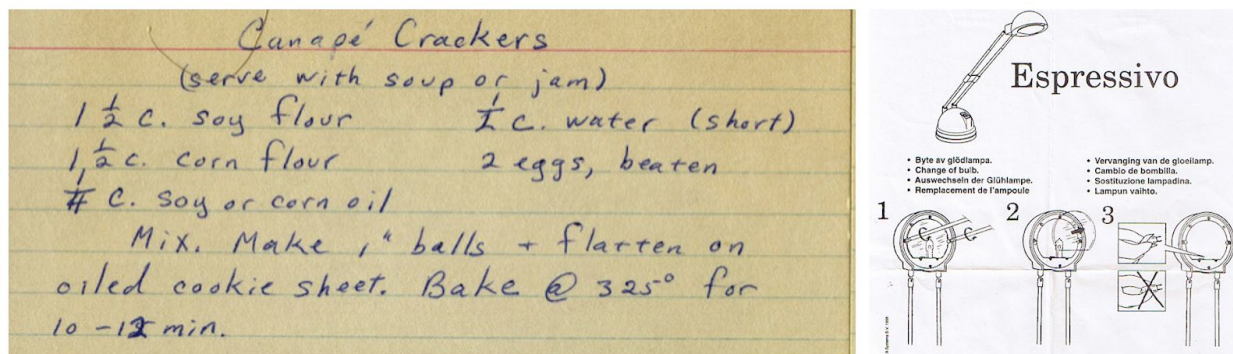 Canapé Crackers
(serve with soup or jam)
1 1/2 c. soy flour
1 1/2 c. corn flour
1/4 c. soy or corn oil
c. water (short)
2 eggs, beaten
Mix. Make 1" balls + flatten on
oiled cookie sheet. Bake @ 325° for
10 - 12 min.
Espressivo
• Byte av glödlampa.
• Change of bulb.
• Auswechseln der Glühlampe.
• Remplacement de l'ampoule
• Vervanging van de gloeilamp.
• Cambio de bombilla.
• Sostituzione lampadina.
• Lampun vaihto.
1 2 3